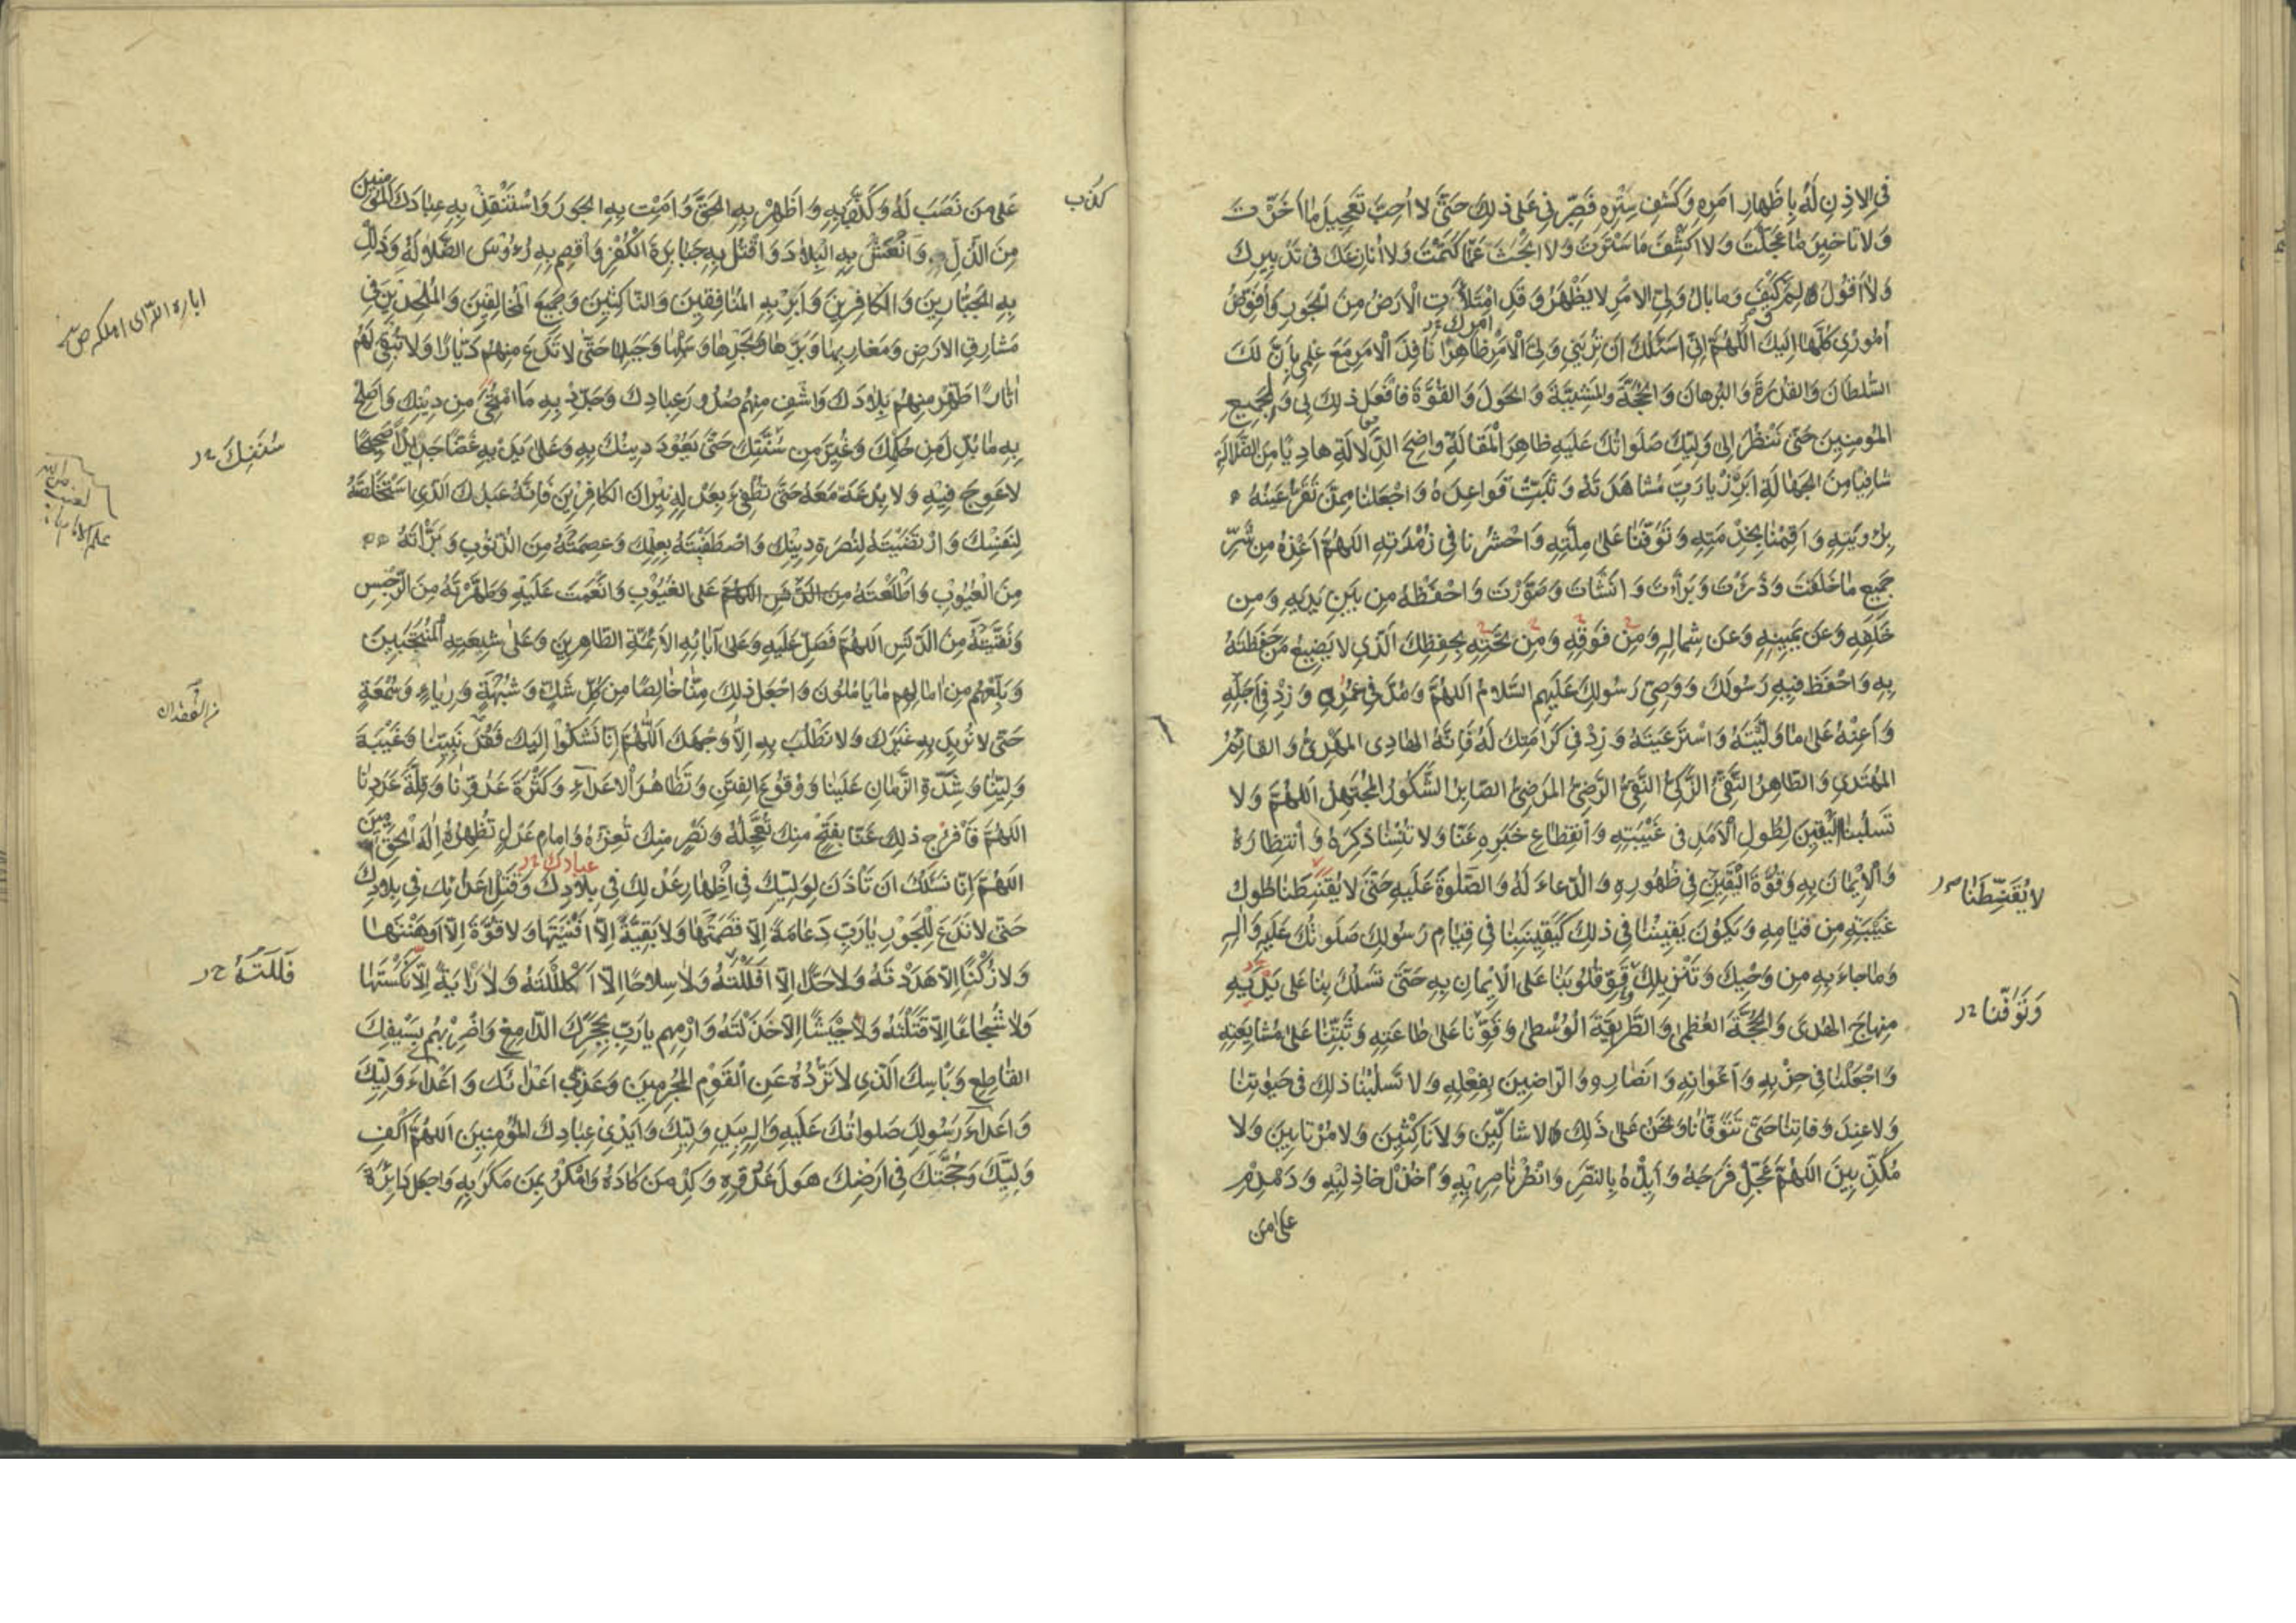 فِي الِاذنِ لَهُ بِاِظْهارِ اَمرِهِ وَكَشفِ سِترِهِ فَصَبِّرني عَلى ذلِكَ حَتّى لا اُحِبَّ تَعجيلَ ما اَخَّرْتَ
وَلا تَاخيرَ ما عَجَّلْتَ وَلا اَكشِفَ ما سَتَرتَ وَلا ابْحَثَ عَمّا كَتَمْتَ وَلا اُنازِعَكَ في تَدبيرِكَ
وَلا اَقولُ لِمَ وَكَيْفَ وَما بالُ وَلِيِّ الامْرِ لا يَظْهَرُ وَقَدِ امْتَلَأَتِ الْاَرْضُ مِنَ الْجَورِ وَاُفَوِّضُ
اُمُوري كُلَّها اِلَيكَ اَللّهُمَّ اِنّي اَسئَلُكَ اَن تُرِيَني وَلِيَّ الْاَمْرِ ظاهِرًا نافِذَ الْاَمرِ مَعَ عِلمي بِاَنَّ لَكَ
امرك خ
السُّلطانَ وَالقُدرَةَ وَالبُرهانَ وَالحُجَّةَ وَالمَشِيَّةَ وَالحَولَ وَالقُوَّةَ فَافْعَل ذلِكَ بي وَبِجَميعِ
المُؤمِنينَ حَتّى نَنْظُرَ اِلى وَلِيِّكَ صَلَواتُكَ عَلَيهِ ظاهِرَ الْمَقالَةِ واضِحَ الدَّلالَةِ هادِيًا مِنَ الضَّلالَةِ
شافِيًا مِنَ الجَهالَةِ اَبرِزْ يا رَبِّ مُشاهَدَتَهُ وَثَبِّتْ قَواعِدَهُ وَاجْعَلنا مِمَّن تَقَرُّ عَينُهُ
بِرُؤيَتِهِ وَاَقِمْنا بِخِدْمَتِهِ وَتَوَفَّنا عَلى مِلَّتِهِ وَاحْشُرنا في زُمْرَتِهِ اَللّهُمَّ اَعِذْهُ مِن شَرِّ
جَميعِ ما خَلَقتَ وَذَرَئتَ وَبَرَأتَ وَانشَأتَ وَصَوَّرتَ وَاحْفَظْهُ مِن بَينِ يَدَيهِ وَمِن
خَلفِهِ وَعَن يَمينِهِ وَعَن شِمالِهِ وَمِن فَوقِهِ وَمِن تَحتِهِ بِحِفظِكَ الَّذي لا يَضيعُ مَن حَفِظتَهُ
بِهِ وَاحْفَظ فيهِ رَسُولَكَ وَوَصِيَّ رَسُولِكَ عَلَيهِمُ السَّلامُ اَللّهُمَّ وَمُدَّ في عُمُرِهِ وَزِدْ في اَجَلِهِ
وَاَعِنْهُ عَلى ما وَلَّيْتَهُ وَاسْتَرعَيتَهُ وَزِدْ في كَرامَتِكَ لَهُ فَاِنَّهُ الهادِي المَهْدِيُّ وَالقائِمُ
المُهتَدي وَالطّاهِرُ التَّقِيُّ الزَّكِيُّ النَّقِيُّ الرَّضِيُّ المَرضِيُّ الصّابِرُ الشَّكُورُ المُجْتَهِدُ اَللّهُمَّ وَلا
تَسلُبنا الْيَقينَ لِطُولِ الْاَمَدِ في غَيْبَتِهِ وَانقِطاعِ خَبَرِهِ عَنّا وَلا تُنْسِنا ذِكرَهُ وَانْتِظارَهُ
وَالْايمانَ بِهِ وَقُوَّةَ الْيَقينِ في ظُهُورِهِ وَالدُّعاءَ لَهُ وَالصَّلوةَ عَلَيهِ حَتّى لا يُقَنِّطَنا طُولُ
لا يُقَنِّطَنا
غَيْبَتِهِ مِن قِيامِهِ وَيَكُونَ يَقينُنا في ذلِكَ كَيَقينِنا في قِيامِ رَسُولِكَ صَلَواتُكَ عَلَيهِ وَالِهِ
وَما جاءَ بِهِ مِن وَحْيِكَ وَتَنْزيلِكَ قَوِّ قُلُوبَنا عَلَى الْايمانِ بِهِ حَتّى تَسْلُكَ بِنا عَلى يَدَيهِ
مِنهاجَ الهُدى وَالمَحَجَّةَ العُظمى وَالطَّريقَةَ الْوُسْطى وَقَوِّنا عَلى طاعَتِهِ وَثَبِّتْنا عَلى مُشايَعَتِهِ
وَتَوَفَّنا خ
وَاجْعَلْنا في حِزبِهِ وَاَعْوانِهِ وَانصارِهِ وَالرّاضينَ بِفِعْلِهِ وَلا تَسلُبْنا ذلِكَ في حَيوتِنا
وَلا عِندَ وَفاتِنا حَتّى تَتَوَفّانا وَنَحْنُ عَلى ذلِكَ لا شاكّينَ وَلا ناكِثينَ وَلا مُرْتابينَ وَلا
مُكَذِّبينَ اَللّهُمَّ عَجِّلْ فَرَجَهُ وَاَيِّدْهُ بِالنَّصرِ وَانْصُرْ ناصِريهِ وَاخْذُلْ خاذِليهِ وَدَمْدِمْ
على من
عَلى مَن نَصَبَ لَهُ وَكَذَّبَ بِهِ وَاَظْهِرْ بِهِ الحَقَّ وَاَمِتْ بِهِ الجَورَ وَاسْتَنْقِذْ بِهِ عِبادَكَ المُؤمِنينَ
مِنَ الذُّلِّ وَانْعَشْ بِهِ الْبِلادَ وَاقْتُلْ بِهِ جَبابِرَةَ الْكُفْرِ وَاَقصِم بِهِ رُؤُسَ الضَّلالَةِ وَذَلِّلْ
بِهِ الجَبّارينَ وَالكافِرينَ وَاَبِرْ بِهِ المُنافِقينَ وَالنّاكِثينَ وَجَميعَ الْمُخالِفينَ وَالمُلْحِدينَ في
مَشارِقِ الارَضِ وَمَغارِبِها وَبَرِّها وَبَحرِها وَسَهلِها وَجَبَلِها حَتّى لا تَدَعَ مِنهُم دَيّارًا وَلا تُبْقِيَ لَهُم
اثارًا طَهِّرْ مِنهُم بِلادَكَ وَاشفِ مِنهُم صُدُورَ عِبادِكَ وَجَدِّد بِهِ مَا امْتَحى مِن دينِكَ وَاَصلِح
بِهِ ما بُدِّلَ مِن حُكمِكَ وَغُيِّرَ مِن سُنَّتِكَ حَتّى يَعُودَ دينُكَ بِهِ وَعَلى يَدَيهِ غَضًّا جَديدًا صَحيحًا
سُنَنِكَ خ
لا عِوَجَ فيهِ وَلا بِدعَةَ مَعَهُ حَتّى تُطفِئَ بِعَدلِهِ نيرانَ الكافِرينَ فَاِنَّهُ عَبدُكَ الَّذي اسْتَخْلَصتَهُ
لِنَفسِكَ وَارْتَضَيتَهُ لِنُصرَةِ دينِكَ وَاصْطَفَيْتَهُ بِعِلمِكَ وَعَصَمتَهُ مِنَ الذُّنُوبِ وَبَرَّأتَهُ
مِنَ الْعُيُوبِ وَاَطْلَعْتَهُ عَلَى الغُيُوبِ وَانْعَمتَ عَلَيهِ وَطَهَّرْتَهُ مِنَ الرِّجسِ
وَنَقَّيتَهُ مِنَ الدَّنَسِ اَللّهُمَّ فَصَلِّ عَلَيهِ وَعَلى آبائِهِ الْاَئِمَّةِ الطّاهِرينَ وَعَلى شيعَتِهِ الْمُنتَجَبينَ
وَبَلِّغهُم مِن امالِهِم ما يَامُلُونَ وَاجْعَل ذلِكَ مِنّا خالِصًا مِن كُلِّ شَكٍّ وَشُبْهَةٍ وَرِياءٍ وَسُمْعَةٍ
حَتّى لا نُريدَ بِهِ غَيرَكَ وَلا نَطْلُبَ بِهِ اِلّا وَجهَكَ اَللّهُمَّ اِنّا نَشكُوا اِلَيكَ فَقْدَ نَبِيِّنا وَغَيْبَةَ
وَلِيِّنا وَشِدَّةَ الزَّمانِ عَلَينا وَوُقُوعَ الفِتَنِ وَتَظاهُرَ الْاعداءِ وَكَثْرَةَ عَدُوِّنا وَقِلَّةَ عَدَدِنا
اَللّهُمَّ فَافْرُج ذلِكَ عَنّا بِفَتحٍ مِنكَ تُعَجِّلُهُ وَنَصرٍ مِنكَ تُعِزُّهُ وَاِمامِ عَدلٍ تُظهِرُهُ اِلهَ الْحَقِّ آمينَ
اَللّهُمَّ اِنّا نَسئَلُكَ اَن تَاْذَنَ لِوَلِيِّكَ في اِظْهارِ عَدلِكَ في بِلادِكَ وَقَتلِ اَعدائِكَ في بِلادِكَ
عبادك خ
حَتّى لا تَدَعَ لِلْجَوْرِ يا رَبِّ دَعامَةً اِلّا قَصَمْتَها وَلا بَقِيَّةً اِلّا اَفْنَيْتَها وَلا قُوَّةً اِلّا اَوهَنْتَها
وَلا رُكْنًا اِلّا هَدَدْتَهُ وَلا حَدًّا اِلّا اَفلَلْتَهُ وَلا سِلاحًا اِلّا اَكْلَلْتَهُ وَلا رايَةً اِلّا نَكَّسْتَها
فَلَلتَهُ خ
وَلا شُجاعًا اِلّا قَتَلْتَهُ وَلا جَيْشًا اِلّا خَذَلْتَهُ وَارْمِهِم يا رَبِّ بِحَجَرِكَ الدّامِغِ وَاضْرِبْهُم بِسَيْفِكَ
القاطِعِ وَبَاْسِكَ الَّذي لا تَرُدُّهُ عَنِ الْقَوْمِ المُجرِمينَ وَعَذِّب اَعْدائَكَ وَاَعْداءَ وَلِيِّكَ
وَاَعداءَ رَسُولِكَ صَلَواتُكَ عَلَيهِ وَالِهِ بِيَدِ وَلِيِّكَ وَاَيْدي عِبادِكَ المُؤمِنينَ اَللّهُمَّ اَكْفِ
وَلِيَّكَ وَحُجَّتَكَ في اَرضِكَ هَولَ عَدُوِّهِ وَكِدْ مَن كادَهُ وَامْكُرْ بِمَن مَكَرَ بِهِ وَاجعَل دائِرَةَ